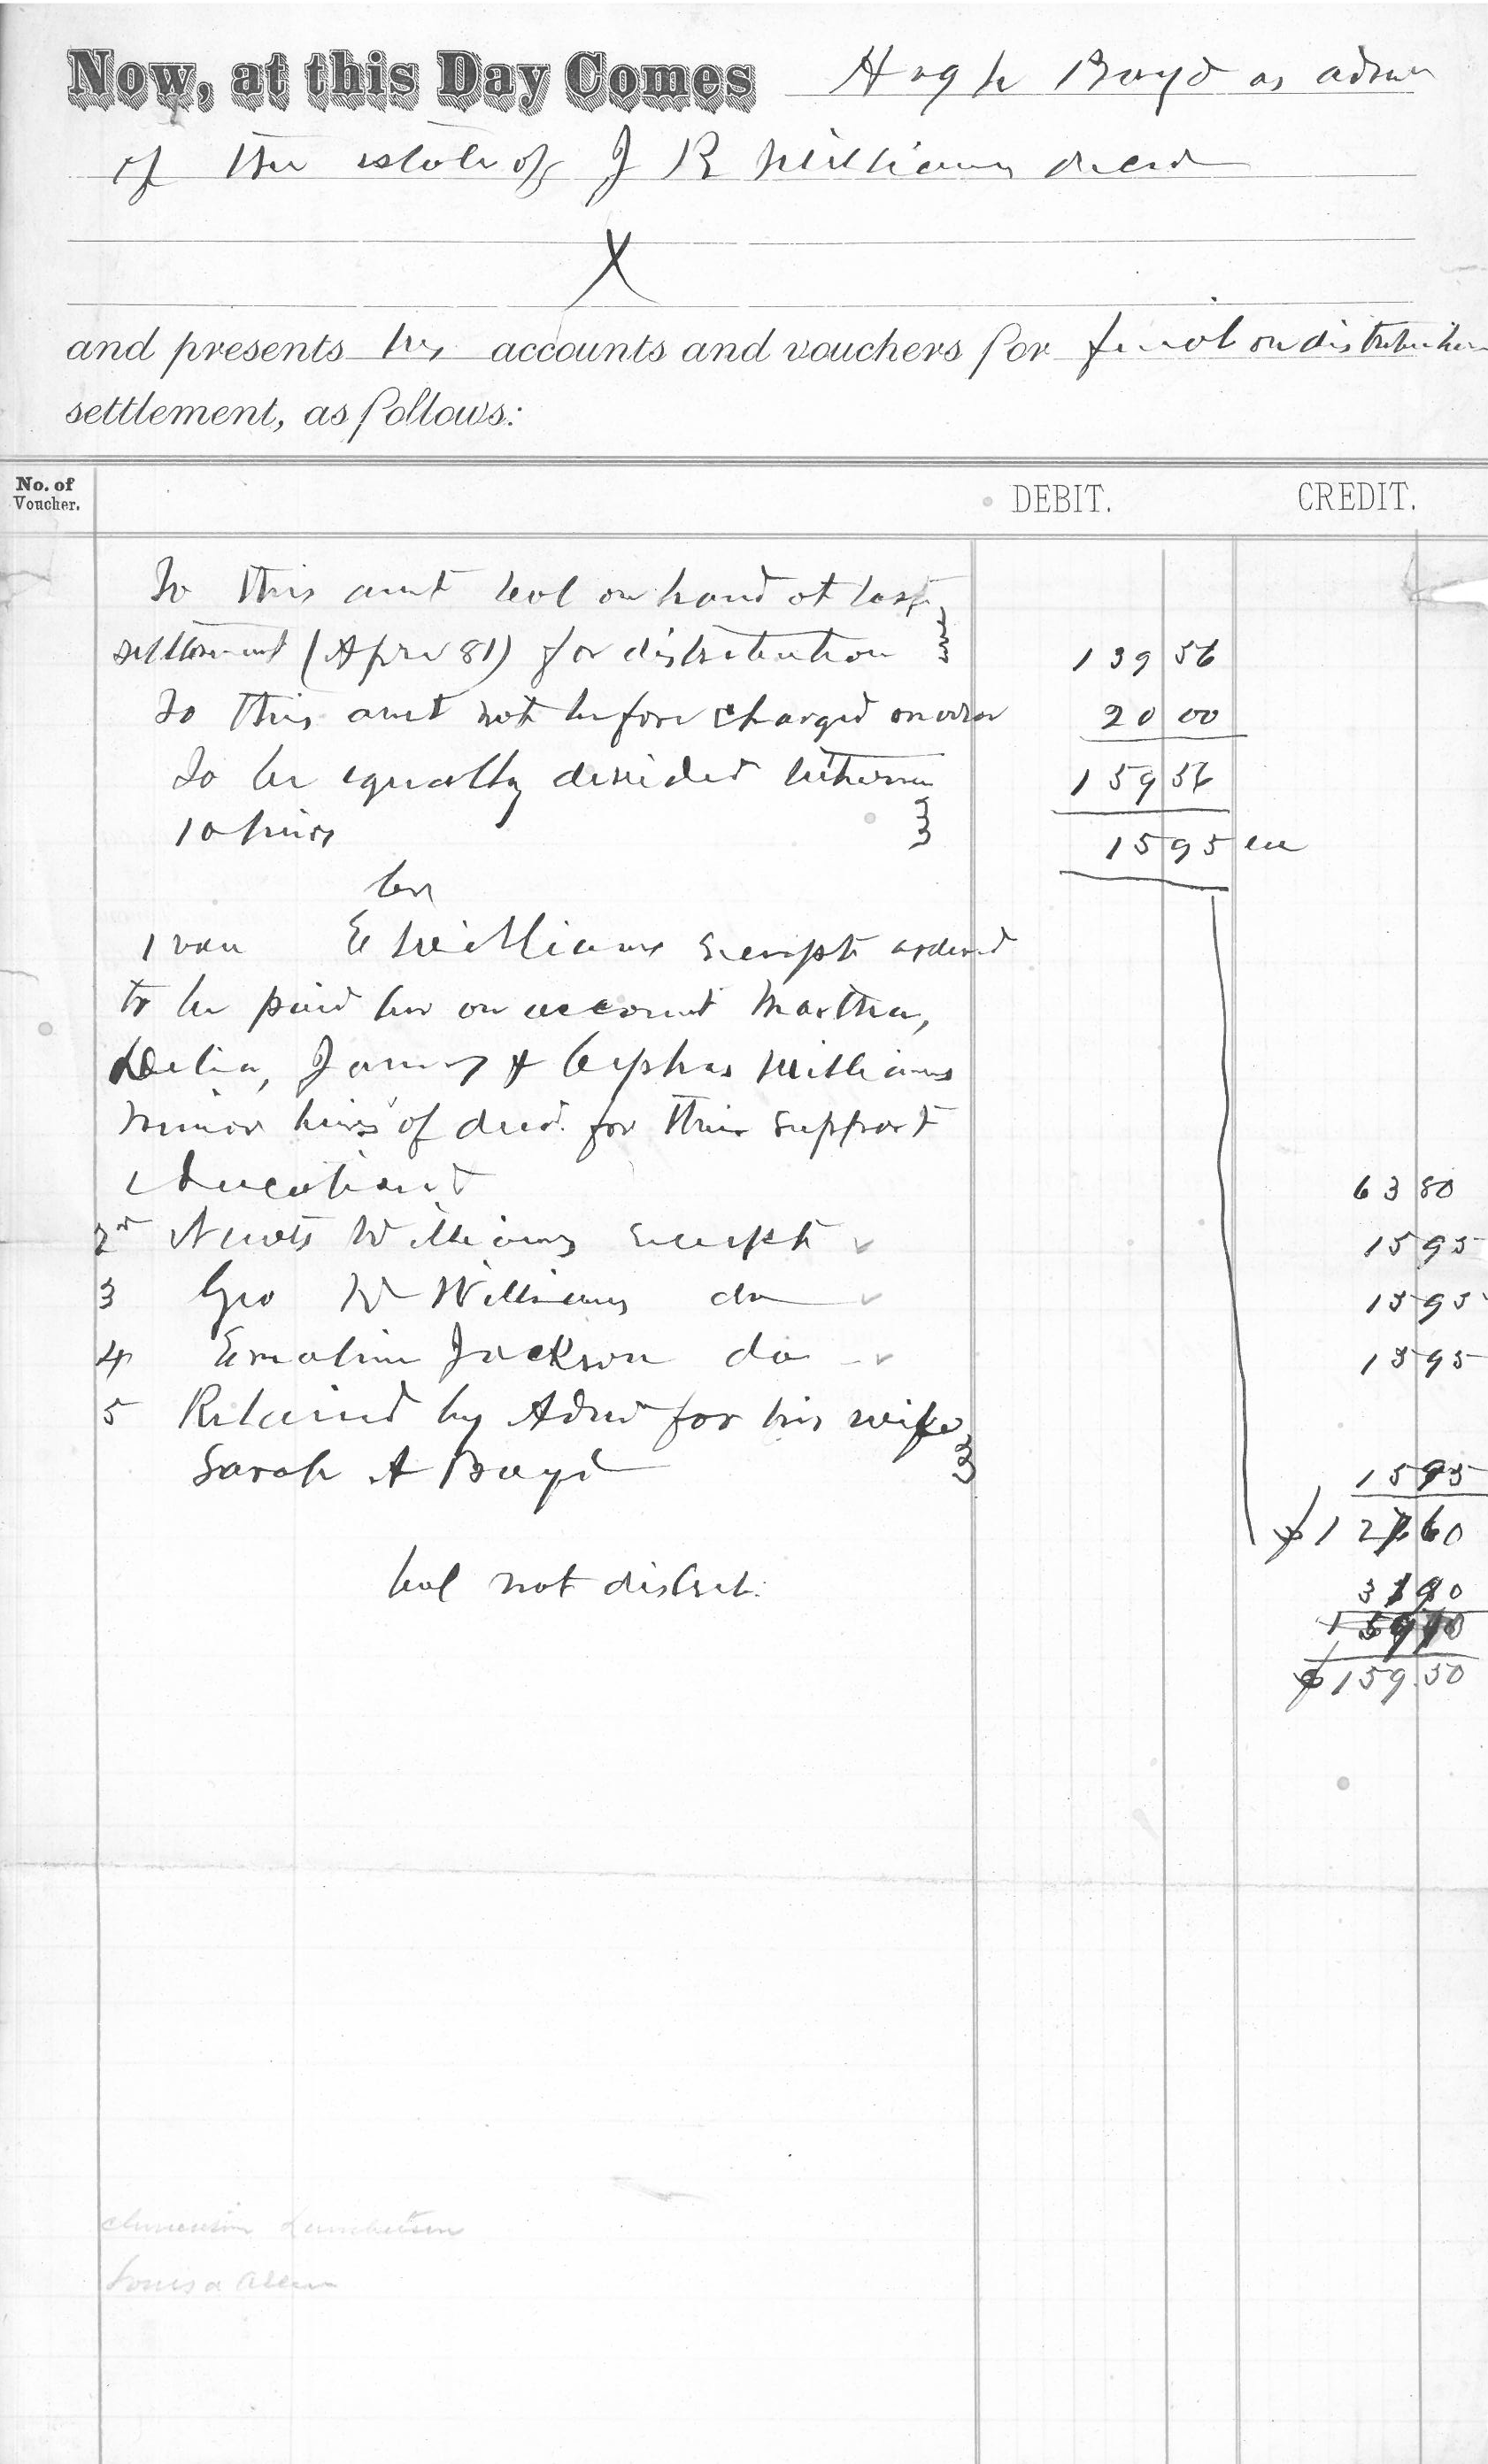 Now, at this Day Comes Hugh Boyd as admr
of the estate of J R Williams decd
X
and presents his accounts and vouchers for final on distribution
settlement, as follows:
No. of Voucher. DEBIT. CREDIT.
To this amt bal on hand at last
settlement (Apr 81) for distribution 139 56
To this amt not before charged 20 00
To be equally divided between 159 56
10 heirs 15 95 ea
Cr
1 vou E Williams receipt ordered
to be paid her on account Martha,
Delia, James & Cephas Williams
minor heirs of decd. for their support
& education 63 80
2 Williams receipt 15 95
3 Geo W Williams do 15 95
4 Emaline Jackson do 15 95
5 Retained by Admr for his wife
Sarah A Boyd 15 95
$127 60
bal not distrib. 31 90
$159.50
Louisa Allen